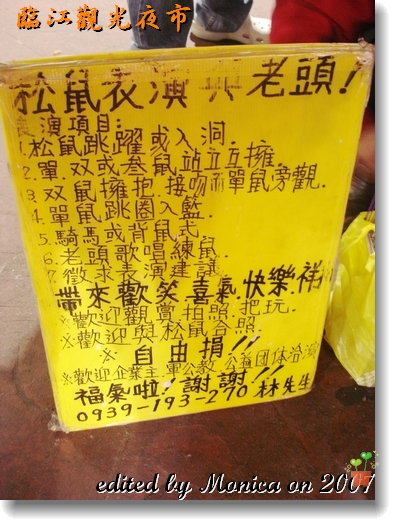 臨江觀光夜市
松鼠表演 老頭!
表演項目:
1.松鼠跳躍或入洞.
2.單.双或叁鼠站立互擁.
3.双鼠擁抱.接吻而單鼠旁觀.
4.單鼠跳圈入籃.
5.騎馬或背鼠走.
6.老頭歌唱練鼠.
7.徵求表演建議.
帶來歡笑喜氣.快樂.祥
※歡迎觀賞.拍照.把玩.
※歡迎與松鼠合照.
※自由捐!!
※歡迎企業主.軍公教.公益團体洽演
福氣啦!謝謝!!
0939-193-270.林先生
edited by Monica on 2007